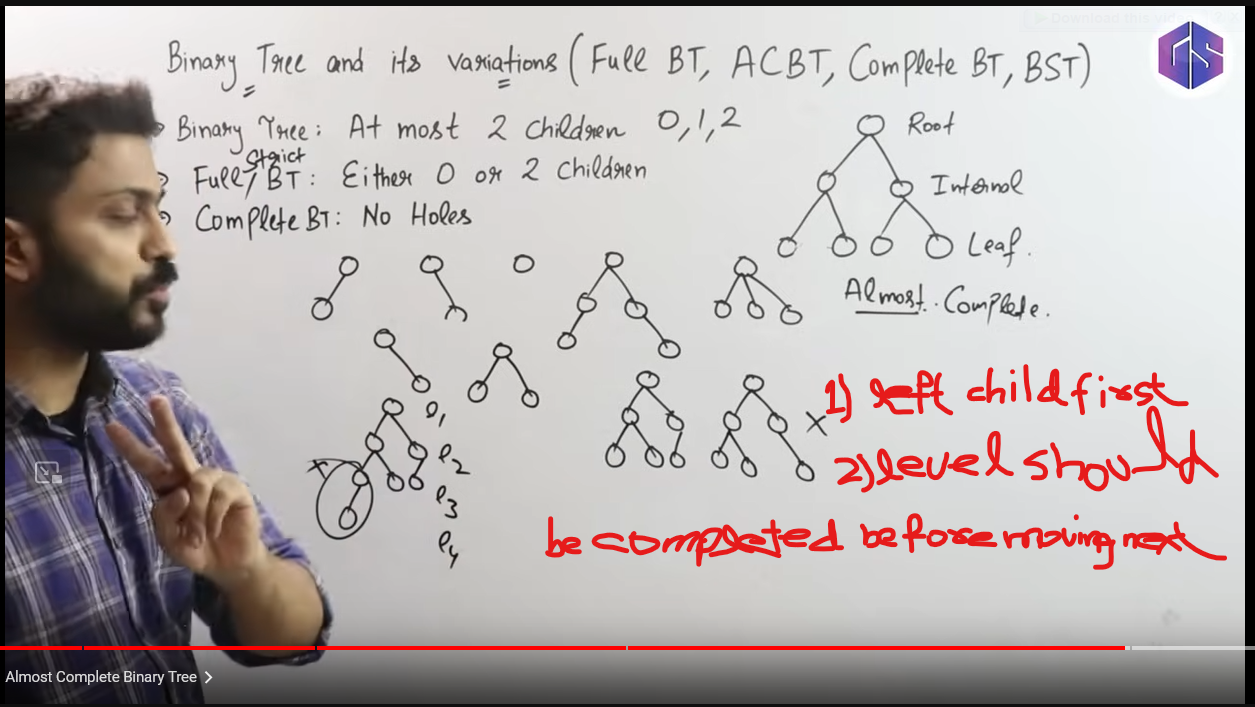 Binary Tree and its variations (Full BT, ACBT, Complete BT, BST)
Binary Tree: At most 2 children 0,1,2
Strict
Full/BT: Either 0 or 2 children
Complete BT: No Holes
Root
Internal
Leaf.
Almost. Complete.
l1
l2
l3
l4
1) left child first
2) level should
be completed before moving next
Almost Complete Binary Tree